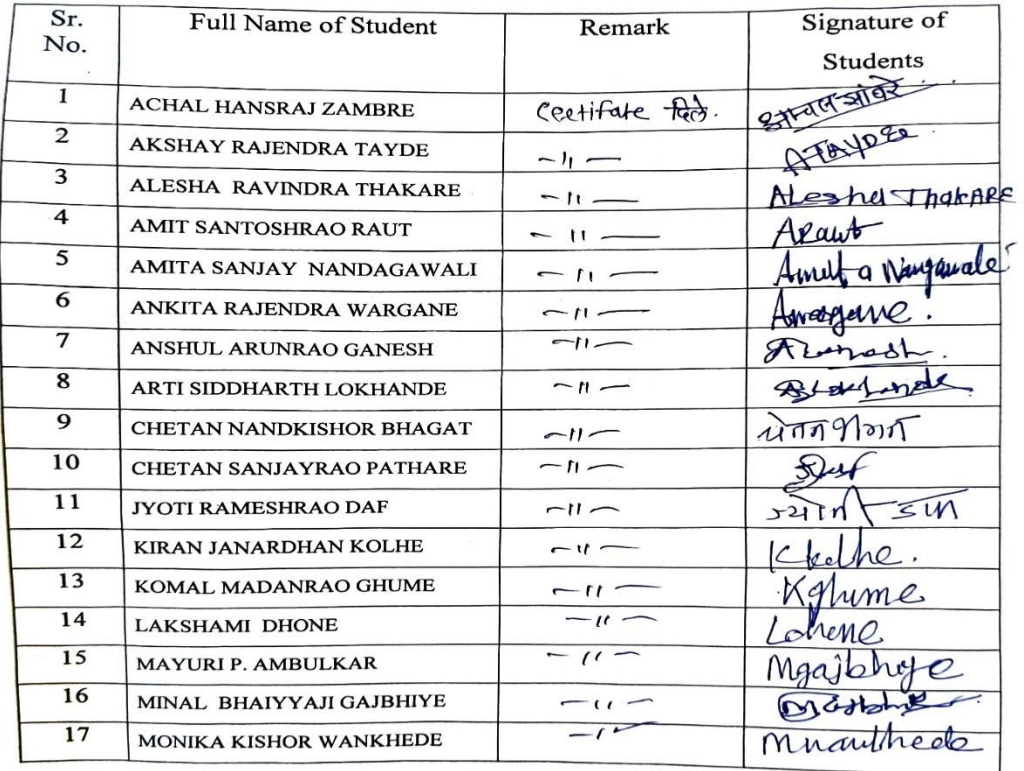 Sr. No. Full Name of Student Remark Signature of Students
1 ACHAL HANSRAJ ZAMBRE Ceetifate दिले. आचल झांबरे
2 AKSHAY RAJENDRA TAYDE -11- ATAYDE
3 ALESHA RAVINDRA THAKARE -11- ALesha ThakARE
4 AMIT SANTOSHRAO RAUT -11- ARaut
5 AMITA SANJAY NANDAGAWALI -11-
6 ANKITA RAJENDRA WARGANE -11- Awargane.
7 ANSHUL ARUNRAO GANESH -11-
8 ARTI SIDDHARTH LOKHANDE -11-
9 CHETAN NANDKISHOR BHAGAT -11- चेतन भगत
10 CHETAN SANJAYRAO PATHARE -11-
11 JYOTI RAMESHRAO DAF -11- ज्योती डाफ
12 KIRAN JANARDHAN KOLHE -11- Kkolhe.
13 KOMAL MADANRAO GHUME -11- Kghume
14 LAKSHAMI DHONE -11- Ldhone
15 MAYURI P. AMBULKAR -11- Mgajbhiye
16 MINAL BHAIYYAJI GAJBHIYE -11-
17 MONIKA KISHOR WANKHEDE -11-